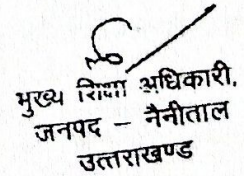 मुख्य शिक्षा अधिकारी,
जनपद - नैनीताल
उत्तराखण्ड